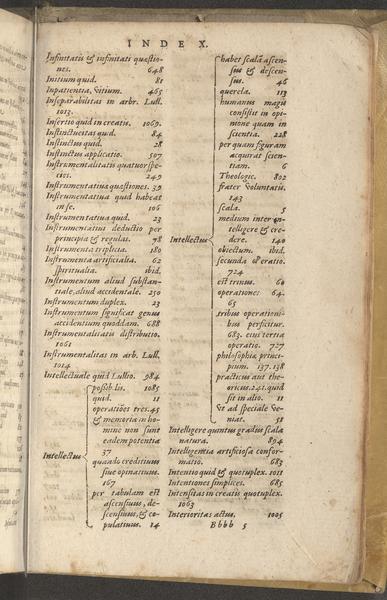 INDEX.
Infinitatis & infinitati quæstio-
nes. 648
Initium quid. 81
Inpatientia, vitium. 465
Inseparabilitas in arbr. Lull.
1013.
Insertio quid in creatis. 1069.
Instinctiuitas quid. 84
Instinctus quid. 28
Instinctus applicatio. 507
Instrumentalitatis quatuor spe-
cies. 249
Instrumentatiua quæstiones. 39
Instrumentatiua quid habeat
in se. 106
Instrumentatiua quid. 23
Instrumentatiua deductio per
principia & regulas. 78
Instrumenta triplicia. 180
Instrumenta artificialia. 62
spiritualia. ibid.
Instrumentum aliud substan-
tiale, aliud accidentale. 250
Instrumentum duplex. 23
Instrumentum significat genus
accidentium quoddam. 688
Instrumentalitatis distributio.
1061
Instrumentalitas in arb. Lull.
1014
Intellectuale quid Lullio. 984
Intellectus
possib.lis. 1085
quid. 11
operatiões tres. 45
& memoria in ho-
mine non sunt
eadem potentia
37
quando creditiuus
siue opinatiuus.
167
per tabulam est
ascensiuus, de-
scensiuus, & co-
pulatiuus. 14
Intellectus
habet scalã ascen-
sus & descen-
sus. 46
querela. 113
humanus magis
consistit in opi-
nione quam in
scientia. 228
per quam figuram
acquirat scien-
tiam. 6
Theologic. 802
frater voluntatis.
143
scala. 5
medium inter in-
telligere & cre-
dere. 140
obiectum. ibid.
secunda operatio.
724
est trinus. 60
operationes 64.
65
tribus operationi-
bus perficitur.
683. eius tertia
operatio. 727
philosophiæ princi-
pium. 137.138
practicus aut the-
oricus. 241. quid
sit in alio. 11
Vt ad speciale ve-
niat. 51
Intelligere quintus gradus scalæ
naturæ. 894
Intelligentia artificiosa confor-
matio. 683
Intentio quid & quotuplex. 1011
Intentiones simplices. 685
Intensitas in creatis quotuplex.
1063
Interioritas actus. 1005
Bbbb 5